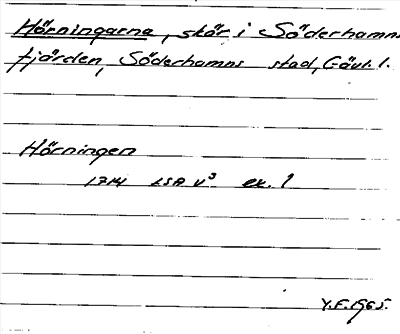 Hörningarna, skär i Söderhamns
fjärden, Söderhamns stad, Gävl. l.
Hörningen
1714 LSA V³ ex. 1
Y.F. 1965.